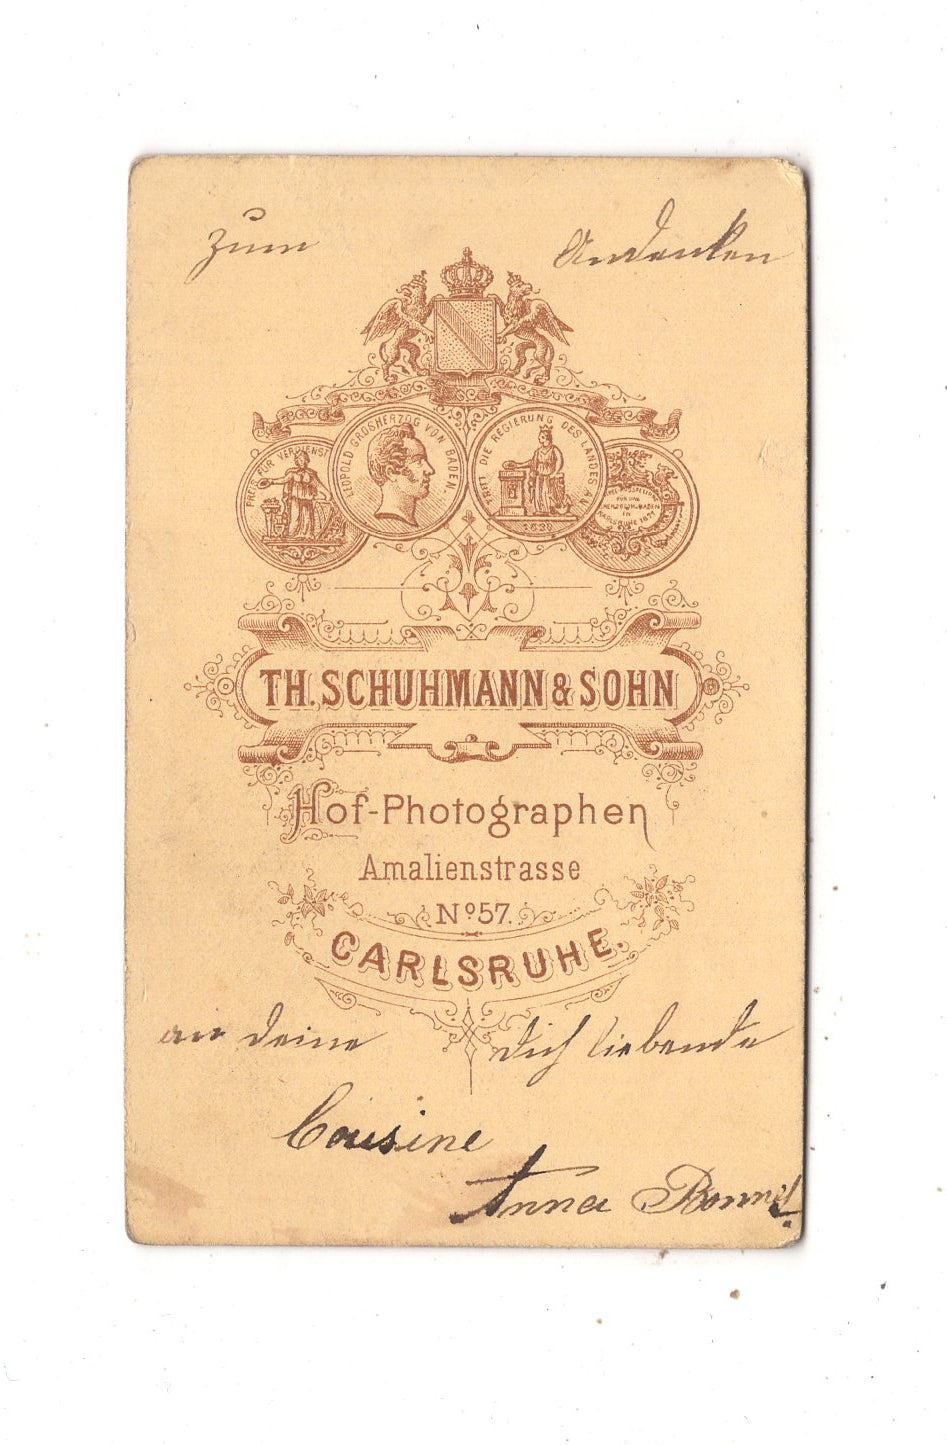 Zum Andenken
PREIS FÜR VERDIENST
LEOPOLD GROSHERZOG VON BADEN.
TRITT DIE REGIERUNG DES LANDES AN
1830
FÜR DAS
IN
KARLSRUHE 1877
TH. SCHUHMANN & SOHN
Hof-Photographen
Amalienstrasse
Nº 57.
CARLSRUHE.
an deine dich liebende
Cousine
Anna